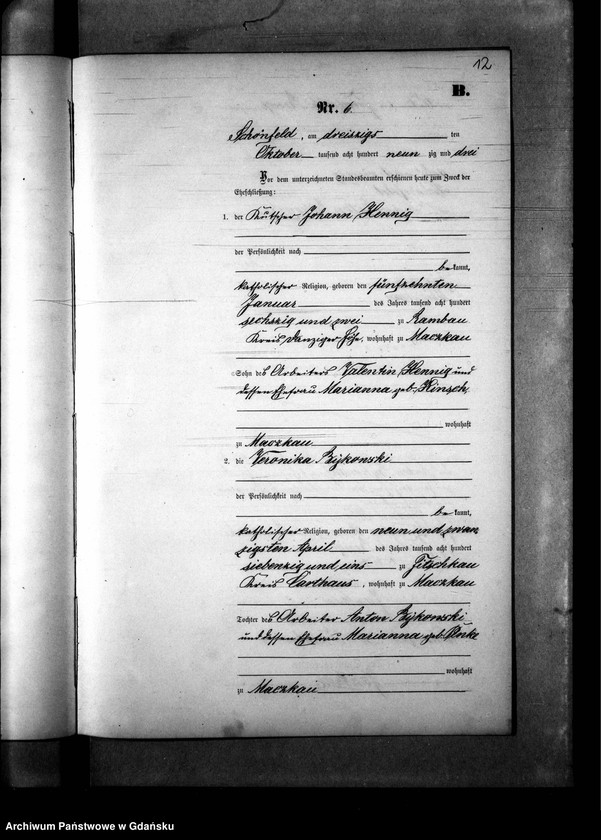 12
B.
Nr. 6.
Schönfeld, am dreiszigs ten
Oktober tausend acht hundert neun zig und drei
Vor dem unterzeichneten Standesbeamten erschienen heute zum Zweck der
Eheschließung:
1. der Kutscher Johann Hennig
der Persönlichkeit nach
be kannt,
katholischer Religion, geboren den fünfzehnten
Januar des Jahres tausend acht hundert
sechszig und zwei zu Rambau
Kreis Danziger Höhe, wohnhaft zu Maczkau
Sohn des Arbeiters Valentin Hennig und
dessen Ehefrau Marianna geb. Hinsch
wohnhaft
zu Maczkau
2. die Veronika Bijkowski
der Persönlichkeit nach
be kannt,
katholischer Religion, geboren den neun und zwan
zigsten April des Jahres tausend acht hundert
siebenzig und eins zu Fitschkau
Kreis Carthaus, wohnhaft zu Maczkau
Tochter des Arbeiter Anton Bijkowski
und dessen Ehefrau Marianna geb.
wohnhaft
zu Maczkau
Archiwum Państwowe w Gdańsku